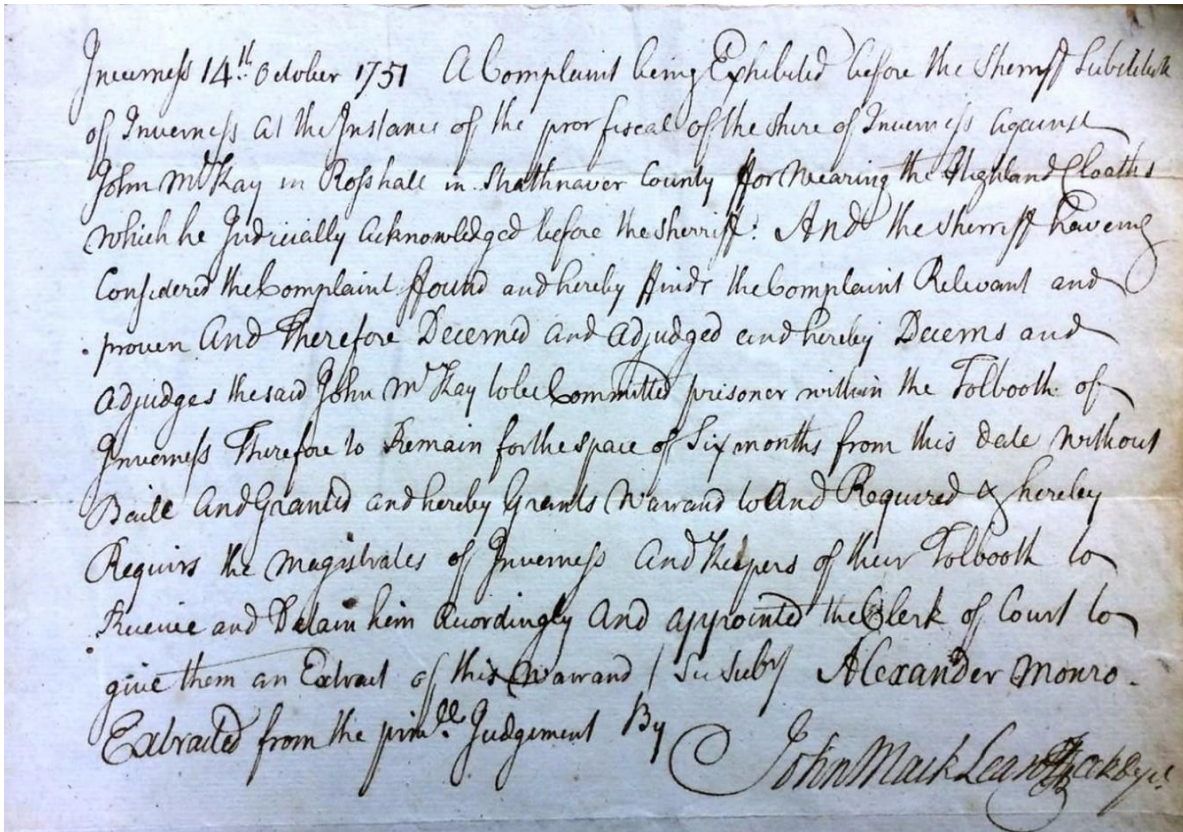 Inverness 14th October 1751 A Complaint being Exhibited before the Sherriff Substitute
of Inverness at the Instance of the pror fiscal of the shire of Inverness against
John McKay in Rosshall in Strathnaver County ffor Wearing the Highland Cloaths
which he Judicially acknowledged before the Sherriff: And the Sherriff haveing
Considered the Complaint ffound and hereby ffinds the Complaint Relevant and
proven And Therefore Decerned and Adjudged and hereby Decerns and
Adjudges the said John McKay to be Committed prisoner within the Tolbooth of
Inverness Therefore to Remain for the space of Six months from this date without
Baile And Granted and hereby Grants Warrand to And Required & hereby
Requirs the magistrates of Inverness And Keepers of their Tolbooth to
Receive and Detain him Accordingly And appointed the Clerk of Court to
give them an Extract of this Warrand / Sic Subr Alexander Monro.
Extracted from the prinll. Judgement By
John MackLean